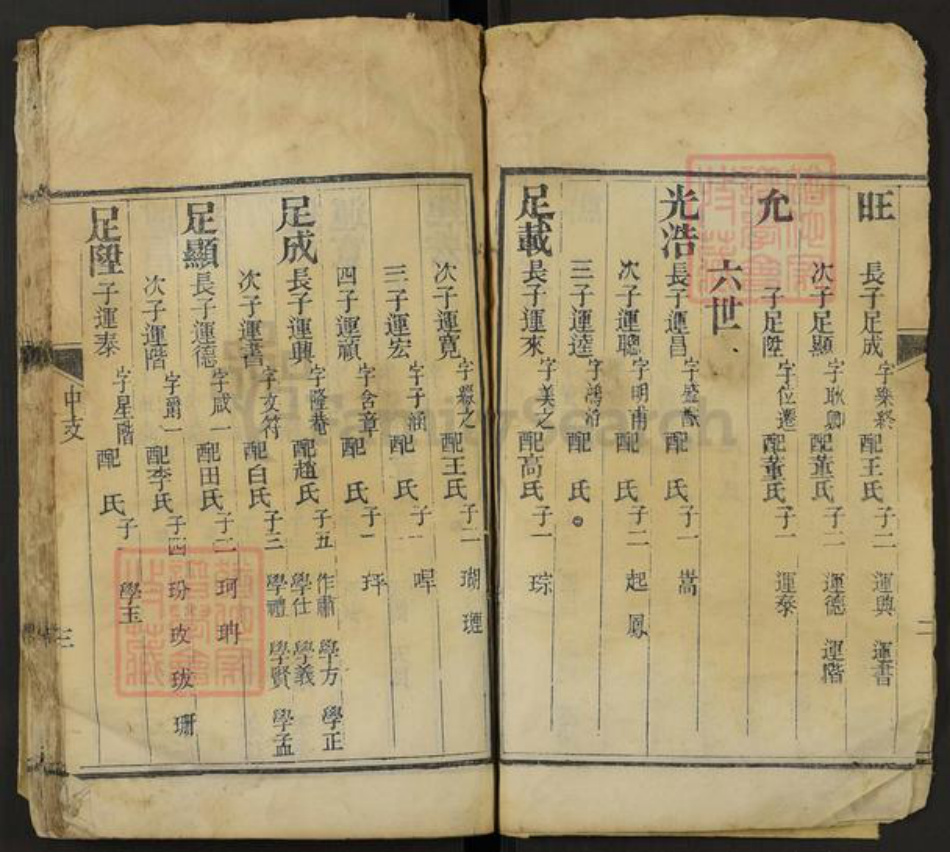 旺
長子足成 字樂終 配王氏 子二 運興 運書
允
次子足顯 字耿卿 配董氏 子二 運德 運階
子足陞 字位遷 配董氏 子一 運泰
六世
光浩
長子運昌 字盛 配 氏 子一 嵩
次子運聰 字明甫 配 氏 子二 起 鳳
三子運達 字鴻 配 氏
足載
長子運來 字美之 配高氏 子一 琮
次子運寬 字 之 配王氏 子二 瑚 璉
三子運宏 字子涵 配 氏 子一
四子運 字含章 配 氏 子一 玶
足成
長子運興 字隆菴 配趙氏 子五 作肅 學方 學正 學仕 學義
次子運書 字文符 配白氏 子三 學禮 學賢 學孟
足顯
長子運德 字咸一 配田氏 子二 珂 珃
次子運階 字爵一 配李氏 子四 玢 玫 珱 珊
足陞
子運泰 字星階 配 氏 子一 學玉
中支
三
二
FamilySearch